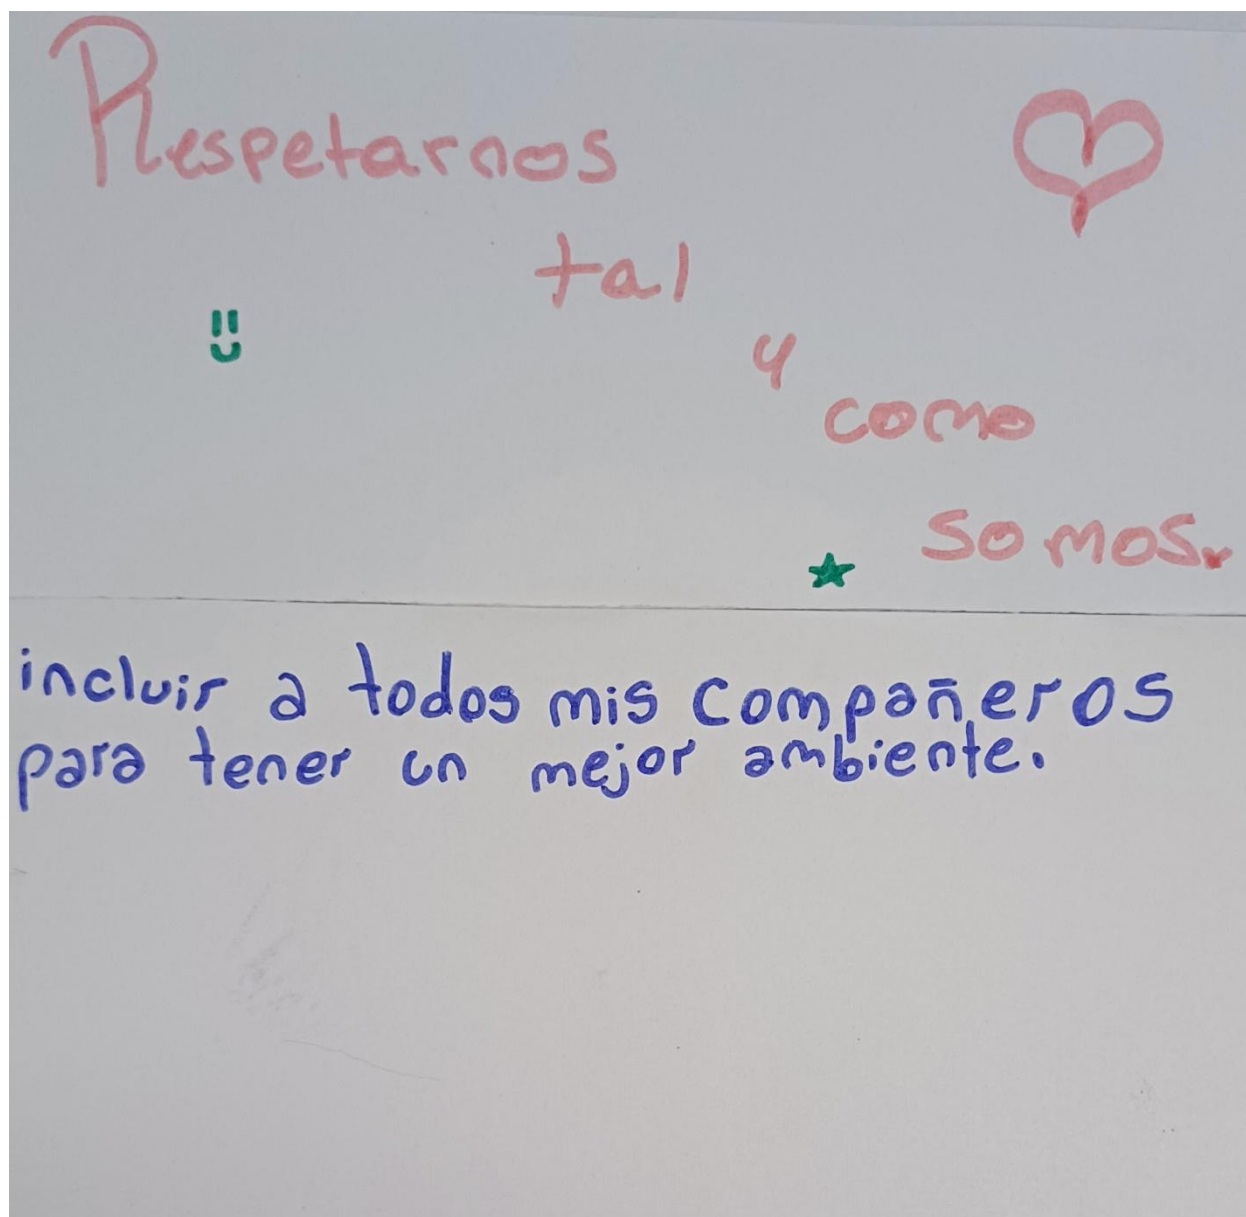 Respetarnos
tal
y
como
somos.
incluir a todos mis compañeros
para tener un mejor ambiente.